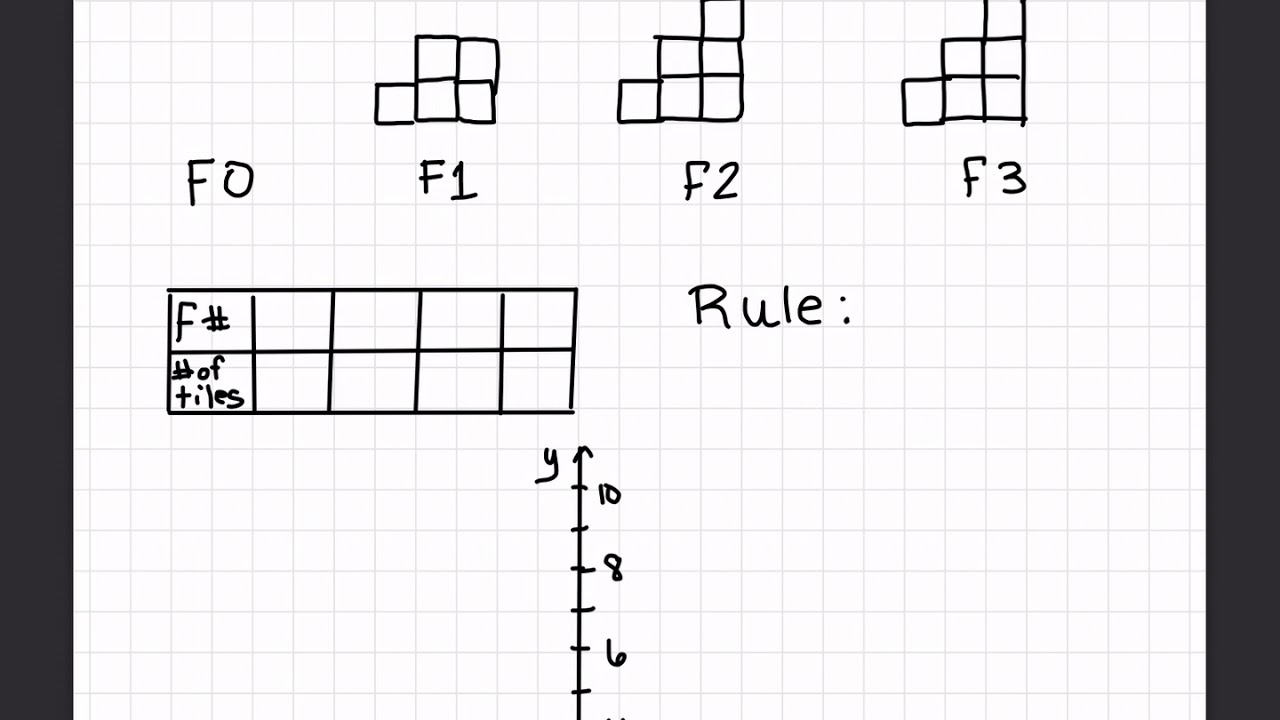 F0 F1 F2 F3
F# Rule:
# of
tiles
y
10
8
6